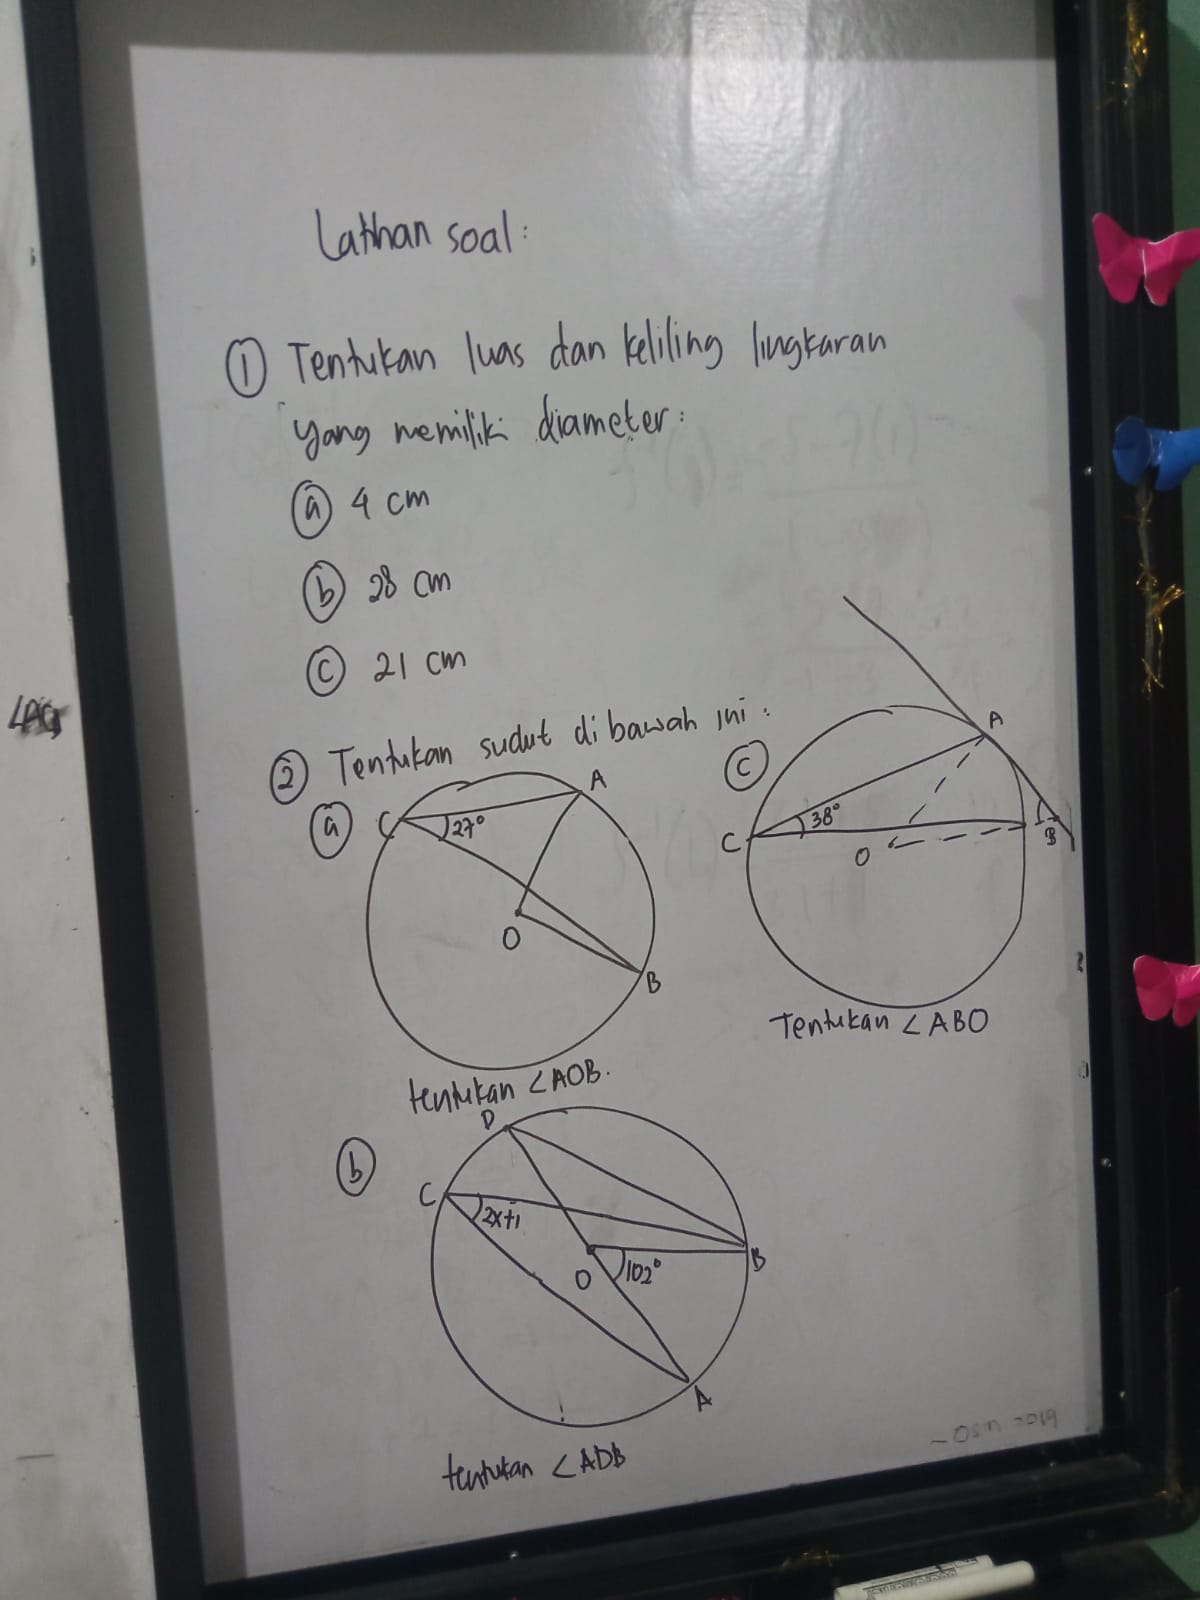 Latihan soal:
① Tentukan luas dan keliling lingkaran
yang memiliki diameter:
ⓐ 4 cm
ⓑ 28 cm
ⓒ 21 cm
② Tentukan sudut di bawah ini:
ⓐ
C
A
27°
O
B
tentukan ∠AOB.
ⓒ
A
C
38°
O
B
Tentukan ∠ABO
ⓑ
D
C
2x+1
O
102°
B
A
tentukan ∠ADB
~ Osin 2019